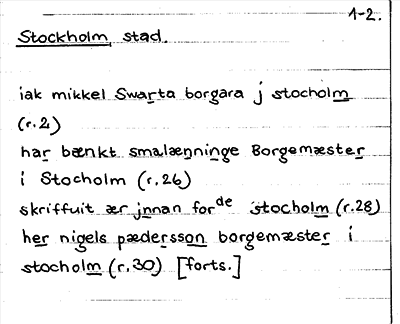 1-2.
Stockholm, stad.
iak mikkel Swarta borgara j stocholm
(r.2)
har bænkt smalænninge Borgemæster
i Stocholm (r.26)
skriffuit ær jnnan forde stocholm (r.28)
her nigels pædersson borgemæster i
stocholm (r.30) [forts.]